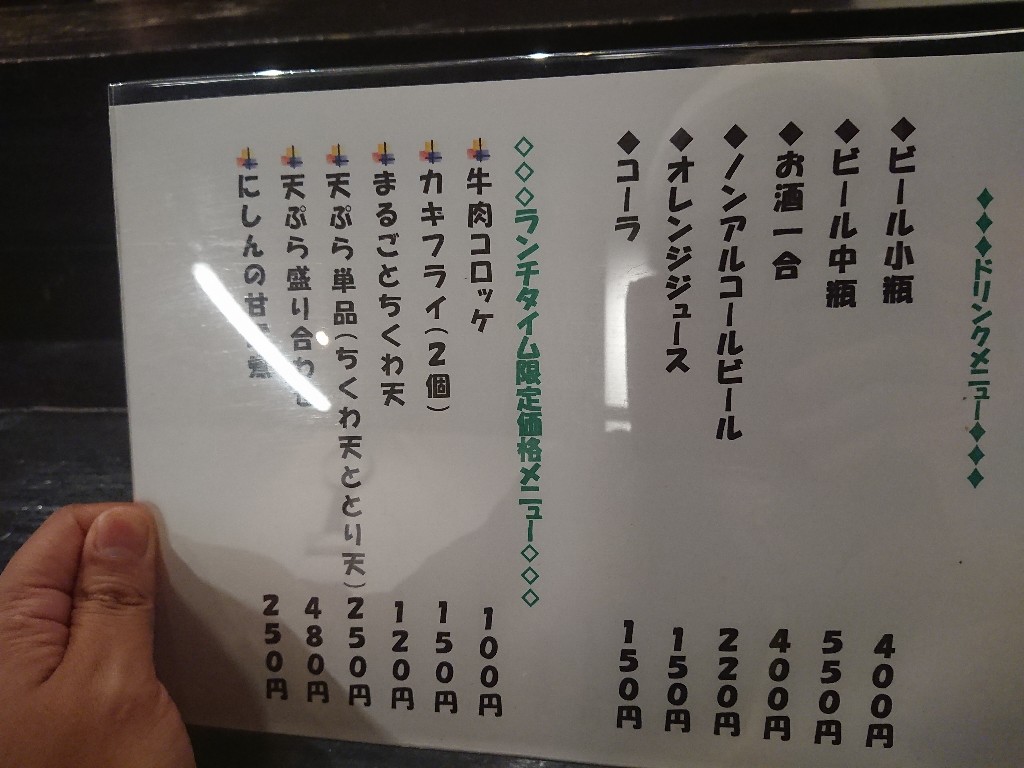 ♦♦♦ドリンクメニュー♦♦♦
◆ビール小瓶 400円
◆ビール中瓶 550円
◆お酒一合 400円
◆ノンアルコールビール 220円
◆オレンジジュース 150円
◆コーラ 150円
◇◇◇ランチタイム限定価格メニュー◇◇◇
牛肉コロッケ 100円
カキフライ(2個) 150円
まるごとちくわ天 120円
天ぷら単品(ちくわ天ととり天) 250円
天ぷら盛り合わせ 480円
にしんの甘 煮 250円